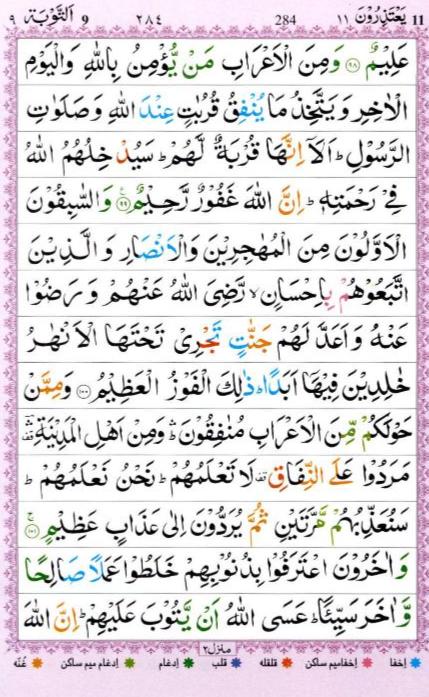 ١١ يَعْتَذِرُوْنَ 11 284 ٢٨٤ 9 اَلتَّوْبَة ٩
عَلِيْمٌ ﴿٩٨﴾ وَمِنَ الْاَعْرَابِ مَنْ يُّؤْمِنُ بِاللّٰهِ وَالْيَوْمِ
الْاٰخِرِ وَيَتَّخِذُ مَا يُنْفِقُ قُرُبٰتٍ عِنْدَ اللّٰهِ وَصَلَوٰتِ
الرَّسُوْلِ ؕ اَلَاۤ اِنَّهَا قُرْبَةٌ لَّهُمْ ؕ سَيُدْخِلُهُمُ اللّٰهُ
فِيْ رَحْمَتِهٖ ؕ اِنَّ اللّٰهَ غَفُوْرٌ رَّحِيْمٌ ﴿٩٩﴾ وَالسّٰبِقُوْنَ
الْاَوَّلُوْنَ مِنَ الْمُهٰجِرِيْنَ وَالْاَنْصَارِ وَالَّذِيْنَ
اتَّبَعُوْهُمْ بِاِحْسَانٍ ۙ رَّضِيَ اللّٰهُ عَنْهُمْ وَرَضُوْا
عَنْهُ وَاَعَدَّ لَهُمْ جَنّٰتٍ تَجْرِيْ تَحْتَهَا الْاَنْهٰرُ
خٰلِدِيْنَ فِيْهَاۤ اَبَدًا ؕ ذٰلِكَ الْفَوْزُ الْعَظِيْمُ ﴿١٠٠﴾ وَمِمَّنْ
حَوْلَكُمْ مِّنَ الْاَعْرَابِ مُنٰفِقُوْنَ ۛ وَمِنْ اَهْلِ الْمَدِيْنَةِ ۛ
مَرَدُوْا عَلَى النِّفَاقِ لَا تَعْلَمُهُمْ ؕ نَحْنُ نَعْلَمُهُمْ ؕ
سَنُعَذِّبُهُمْ مَّرَّتَيْنِ ثُمَّ يُرَدُّوْنَ اِلٰى عَذَابٍ عَظِيْمٍ ﴿١٠١﴾
وَاٰخَرُوْنَ اعْتَرَفُوْا بِذُنُوْبِهِمْ خَلَطُوْا عَمَلًا صَالِحًا
وَّاٰخَرَ سَيِّئًا ؕ عَسَى اللّٰهُ اَنْ يَّتُوْبَ عَلَيْهِمْ ؕ اِنَّ اللّٰهَ
منزل٢
إخفا إخفاميم ساكن قلقله قلب إدغام إدغام ميم ساكن غُنّه